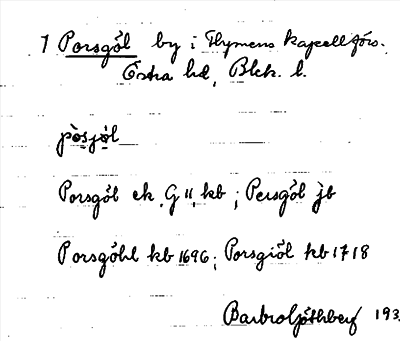 1 Porsgöl by i Thymens kapellförs.
Östra hd, Blek. l.
pòsjö̀l
Porsgöl ek, G 11, kb; Persgöl jb
Porsgöhl kb 1696; Porsgiöl kb 1718
193